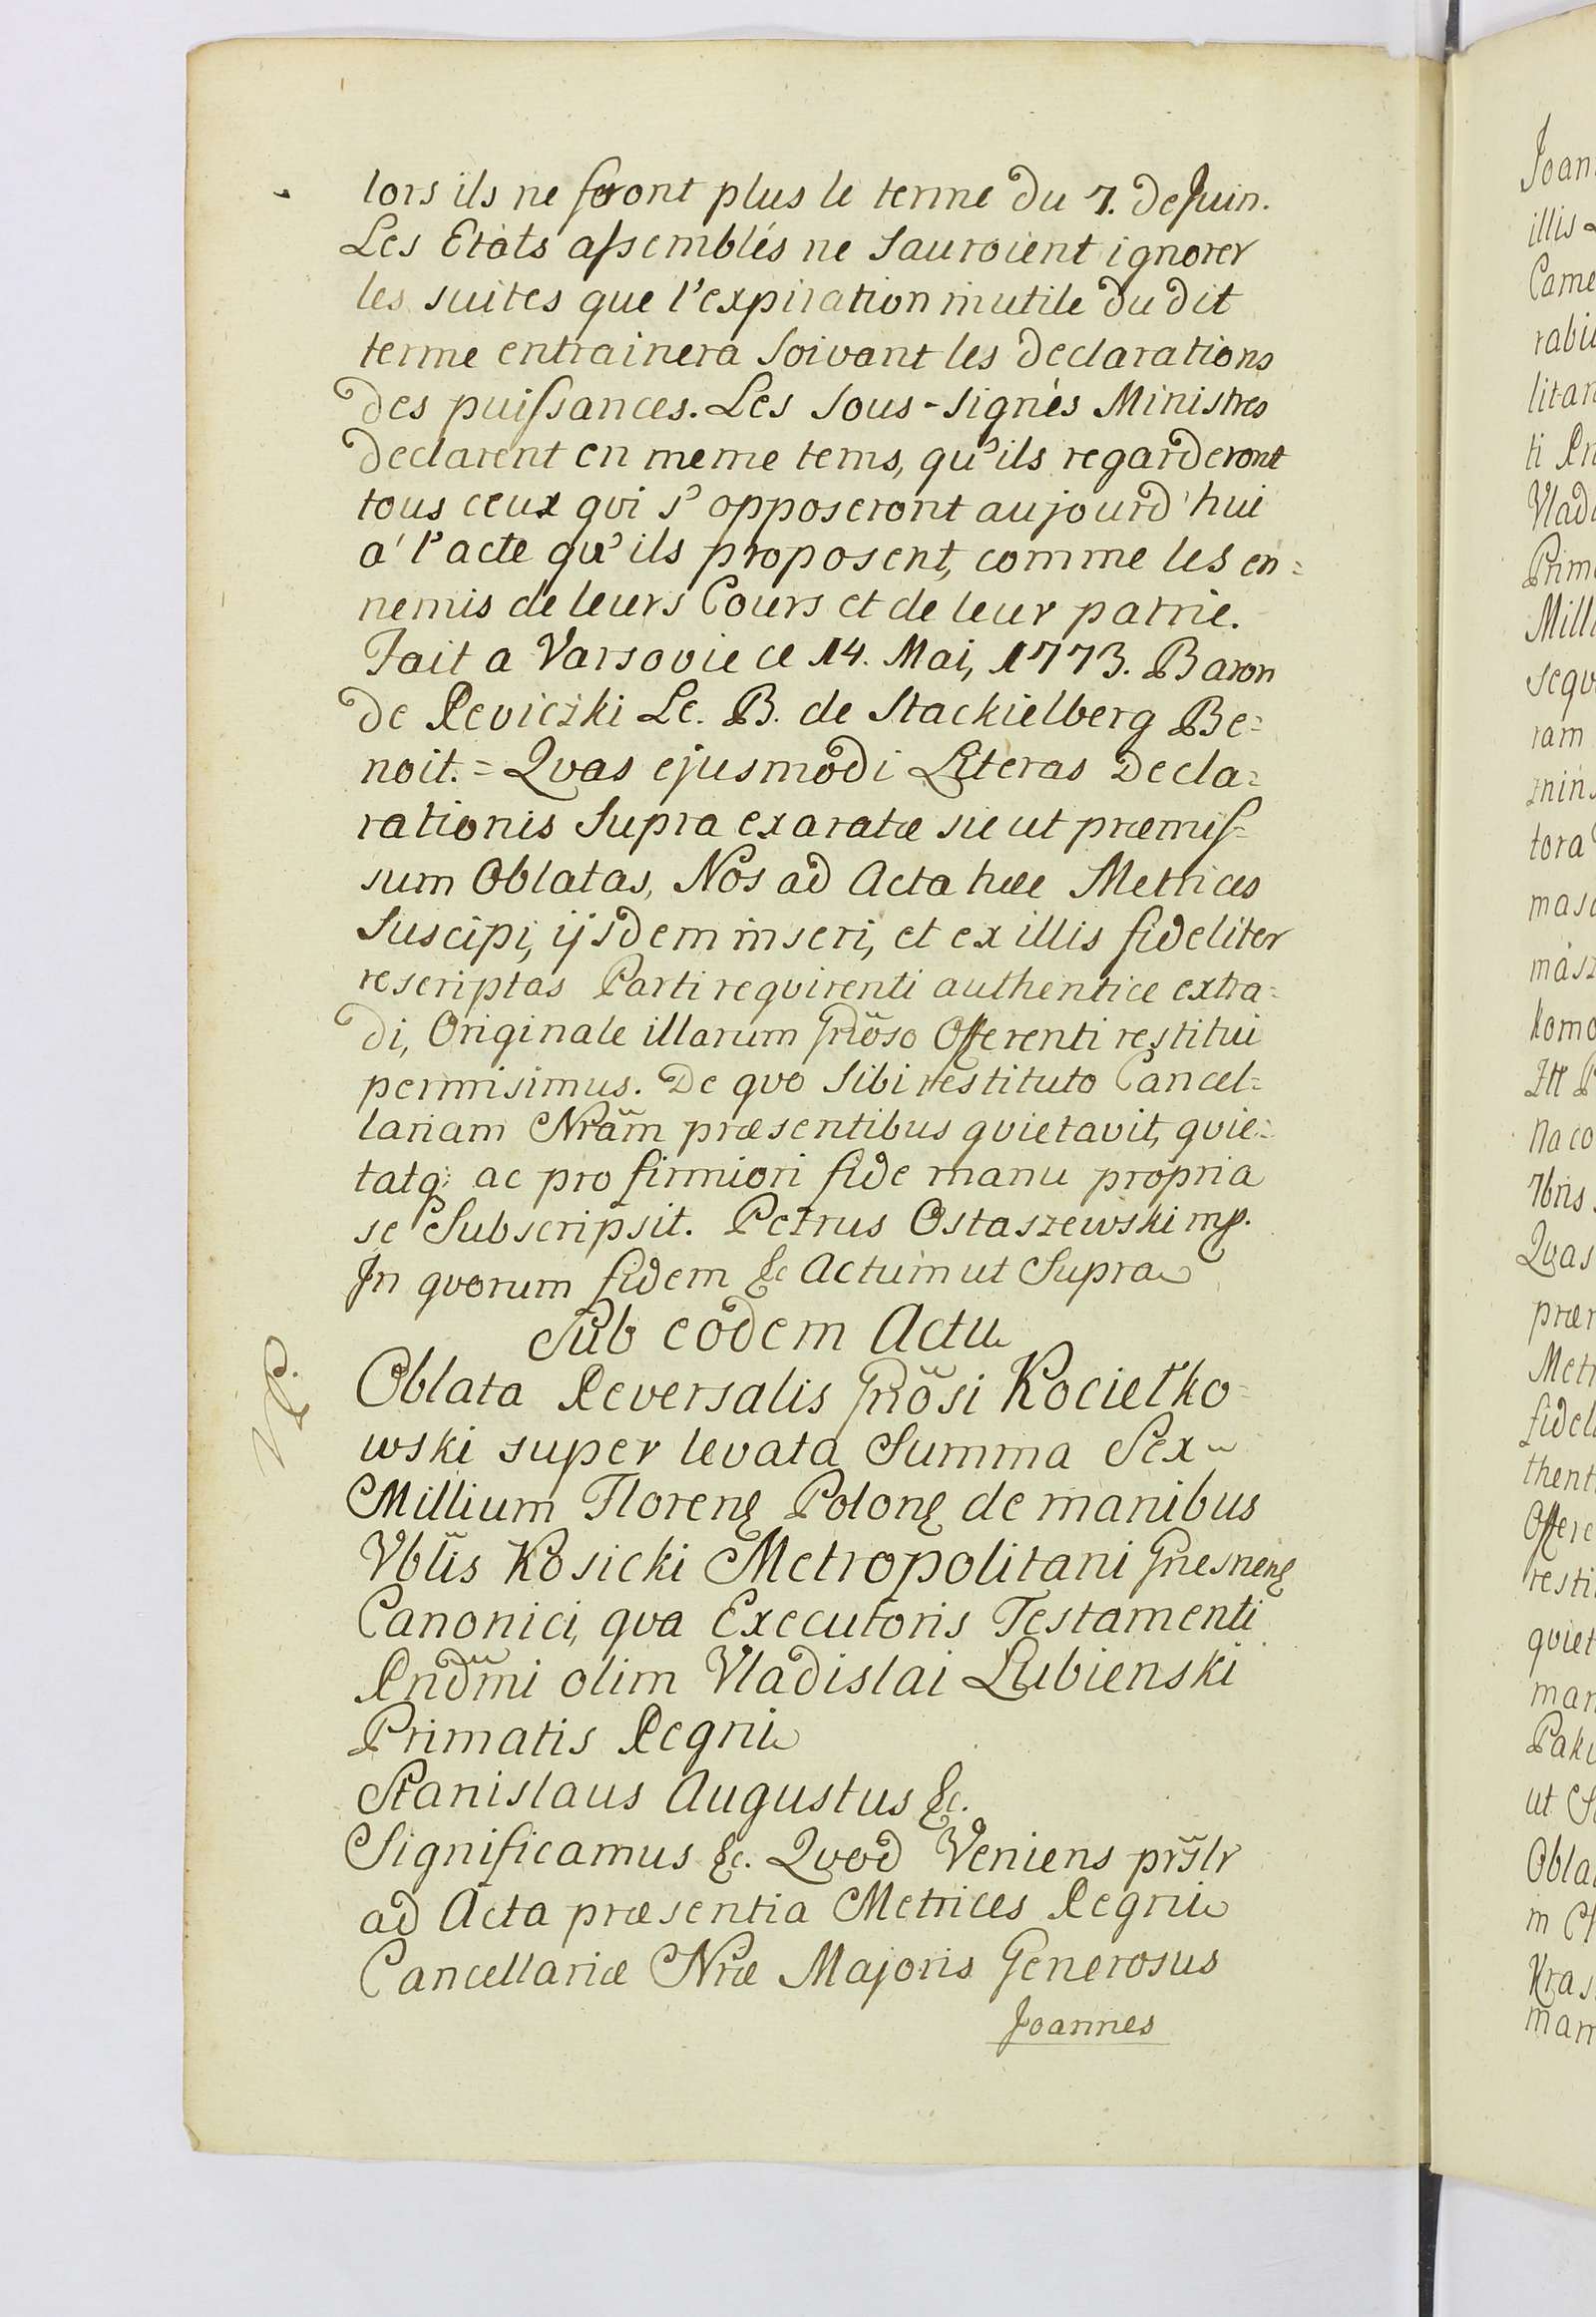 lors ils ne feront plus le terme du 7. de Juin.
Les Etats assemblés ne sauroient ignorer
les suites que l'expiration inutile du dit
terme entrainera soivant les declarations
des puissances. Les sous-signés Ministres
declarent en meme tems, qu'ils regarderont
tous ceux qvi s'opposeront aujourd'hui
a' l'acte qu'ils proposent, comme les en=
nemis de leurs Cours et de leur patrie.
Fait a Varsovie ce 14. Mai, 1773. Baron
de Reviczki Le. B. de Stackielberg Be=
noit. = Qvas ejusmodi Literas Decla=
rationis Supra exaratæ sic ut præmis=
sum Oblatas, Nos ad Acta hæc Metrices
Suscipi, ijsdem inseri, et ex illis fideliter
rescriptas Parti reqvirenti authentice extra=
di, Originale illarum Gñoso Offerenti restitui
permisimus. De qvo Sibi restituto Cancel=
lariam Nram̃ præsentibus qvietavit, qvie=
tatq; ac pro firmiori fide manu propria
se Subscripsit. Petrus Ostaszewski mp.
In qvorum fidem &c Actum ut Supra
Sub eodem Actu
NP.
Oblata Reversalis Gñosi Kociełko=
wski super levata Summa Sex
Millium Floren̨ Polon̨ de manibus
Vblis Kosicki Metropolitani Gnesnen̨
Canonici, qva Executoris Testamenti
Rndmi olim Vladislai Lubienski
Primatis Regni
Stanislaus Augustus &c.
Significamus &c. Qvod Veniens prslr
ad Acta præsentia Metrices Regni
Cancellariæ Nræ Majoris Generosus
Joannes